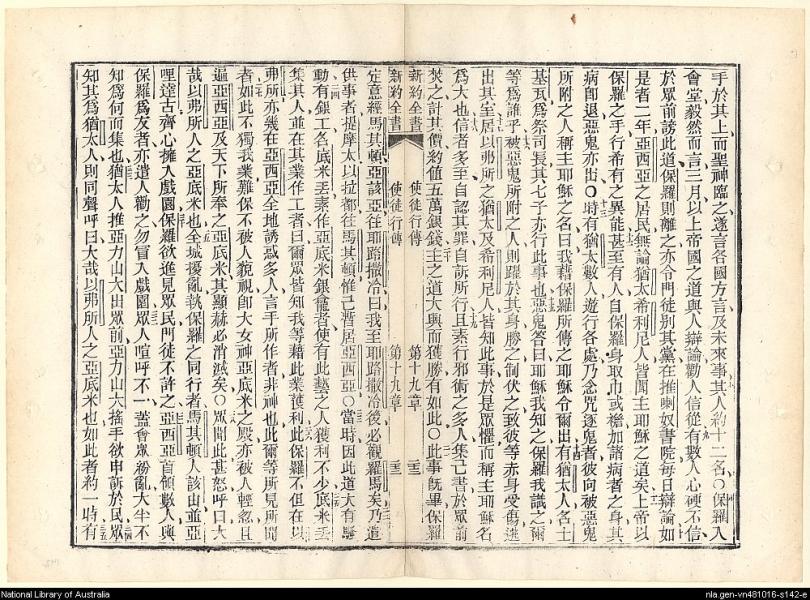 手於其上而聖神臨之遂言各國方言及未來事其人約十二名○保羅入
會堂毅然而言三月以上帝國之道與人辯論勸人信從有數人心硬不信
於眾前謗此道保羅則離之亦令門徒別其黨在推喇奴書院每日辯論如
是者二年亞西亞之居民無論猶太希利尼人皆聞主耶穌之道矣上帝以
保羅之手行希有之異能甚至有人自保羅身取巾或襜加諸病者之身其
病卽退惡鬼亦出○時有猶太數人遊行各處乃念咒逐鬼者彼向被惡鬼
所附之人稱主耶穌之名曰我藉保羅所傳之耶穌令爾出有猶太人名士
基瓦爲祭司長其七子亦行此事也惡鬼答曰耶穌我知之保羅我識之爾
等爲誰乎被惡鬼所附之人則躍於其身勝之制伏之致彼等赤身受傷逃
出其室居以弗所之猶太及希利尼人皆知此事於是眾懼而稱主耶穌名
爲大也信者多至自認其罪自訴所行且素行邪術之多人集己書於眾前
焚之計其價約值五萬銀錢主之道大興而獲勝有如此○此事旣畢保羅
新約全書 使徒行傳 第十九章
新約全書 使徒行傳 第十九章
定意經馬其頓亞該亞往耶路撒冷曰我至耶路撒冷後必觀羅馬矣乃遣
供事者提摩太以拉都往馬其頓惟己暫居亞西亞○當時因此道大有騷
動有銀工名底米丟素作亞底米銀龕者使有此藝之人獲利不少底米丟
集其人並在其業作工者曰爾眾皆知我等藉此業獲利此保羅不但在以
弗所亦幾在亞西亞全地誘惑多人言手所作者非神也此爾等所見所聞
者如此不獨我業難保不被人藐視卽大女神亞底米之殿亦被人輕忽且
遍亞西亞及天下所奉之亞底米其顯赫必消滅矣○眾聞此甚怒呼曰大
哉以弗所人之亞底米也全城擾亂執保羅之同行者馬其頓人該由並亞
哩達古齊心擁入戲園保羅欲進見眾民門徒不許之亞西亞首領數人與
保羅爲友者亦遣人勸之勿冒入戲園眾人喧呼不一蓋會眾紛亂大半不
知爲何而集也猶太人推亞力山大出眾前亞力山大搖手欲申訴於民眾
知其爲猶太人則同聲呼曰大哉以弗所人之亞底米也如此者約一時有
National Library of Australia
nla.gen-vn481016-s142-e